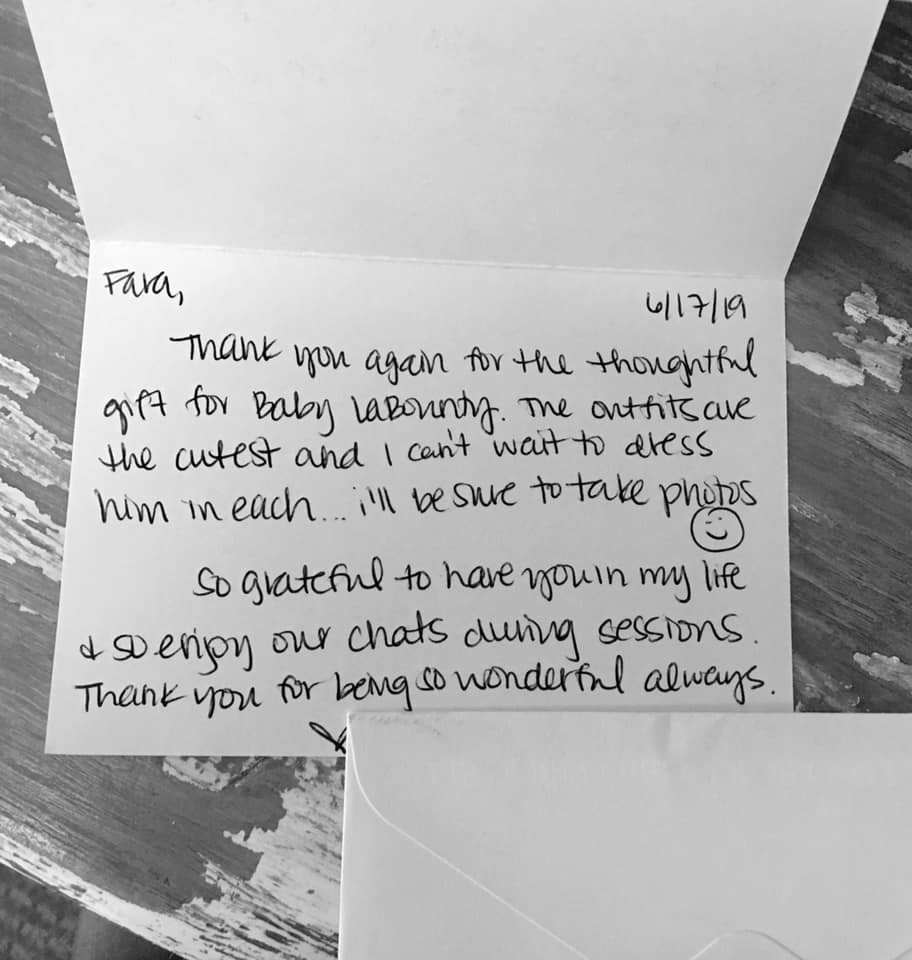 Fara,
6/17/19
Thank you again for the thoughtful
gift for Baby LaBounty. The outfits are
the cutest and I can't wait to dress
him in each... i'll be sure to take photos
So grateful to have you in my life
& so enjoy our chats during sessions.
Thank you for being so wonderful always.